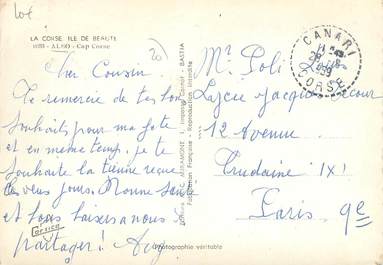 LA CORSE, ILE DE BEAUTÉ
ALBO - Cap Corse
Cher Cousin.
Je remercie de tes bons
souhaits pour ma fête
et en même temps, je te
souhaite la tienne
ces jours. Bonne Santé
et bons baisers a nous
partager!
Corsica
BASTIA
Fabrication Française - Reproduction Interdite
Photographie véritable
CANARI
CORSE
Mr Poli
Lycée Jacques Decour
12 Avenue
Trudaine IX
Paris 9e